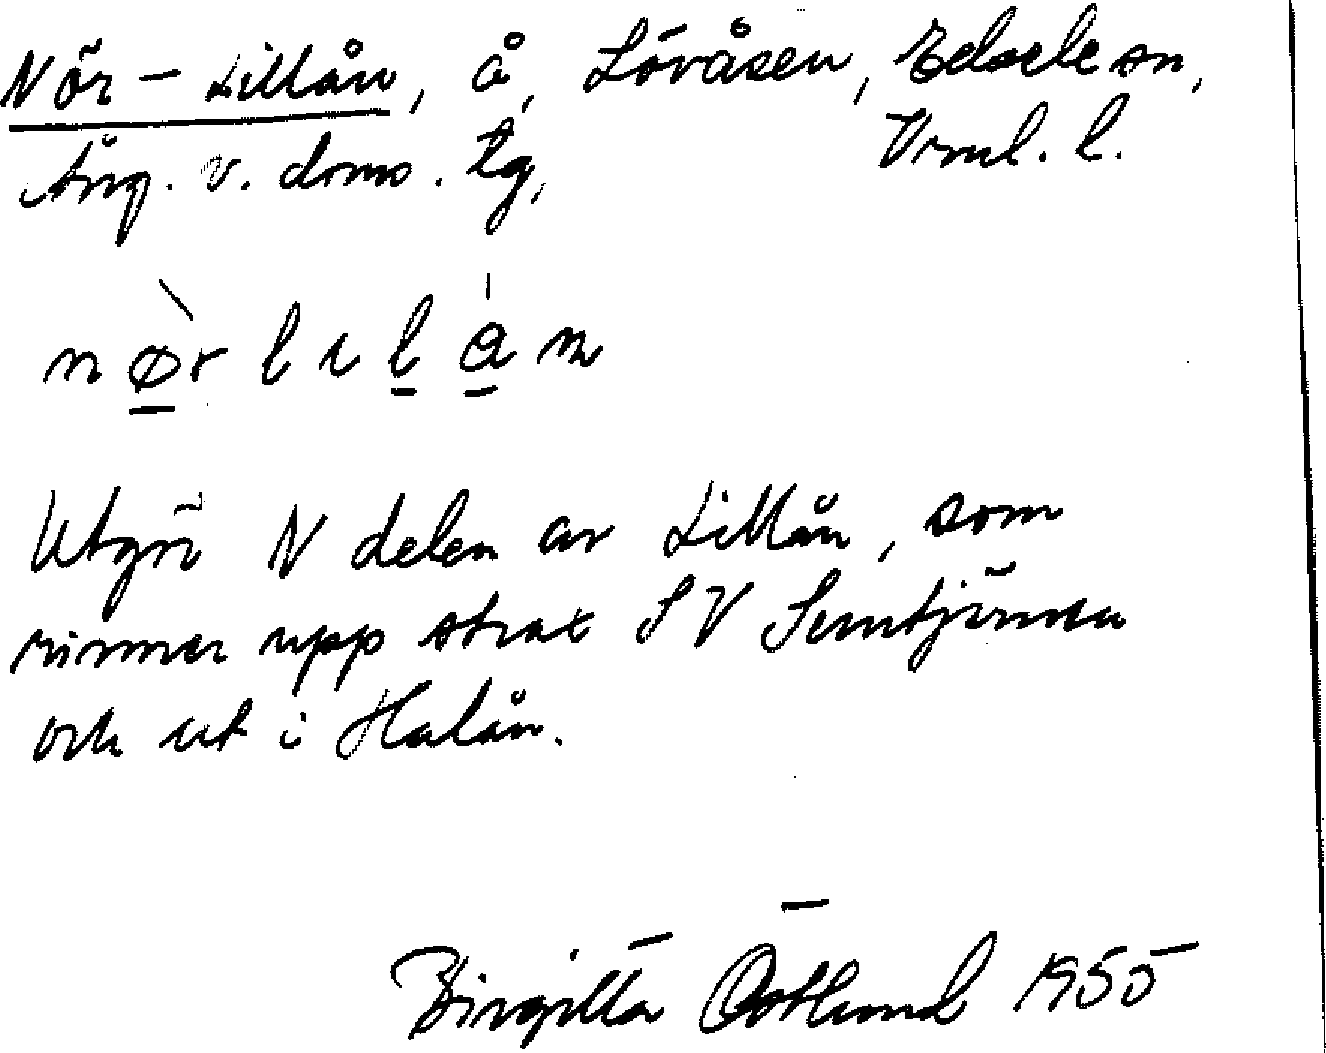 Nör-Lillån, å, Lövåsen, Edsele sn,
Ång. v. doms. tg, Vrnl. l.
nø̀rlılån
Utgör N delen av Lillån, som
rinner upp strax SV Semtjärnen
och ut i Halån.
Birgitta Östlund 1955